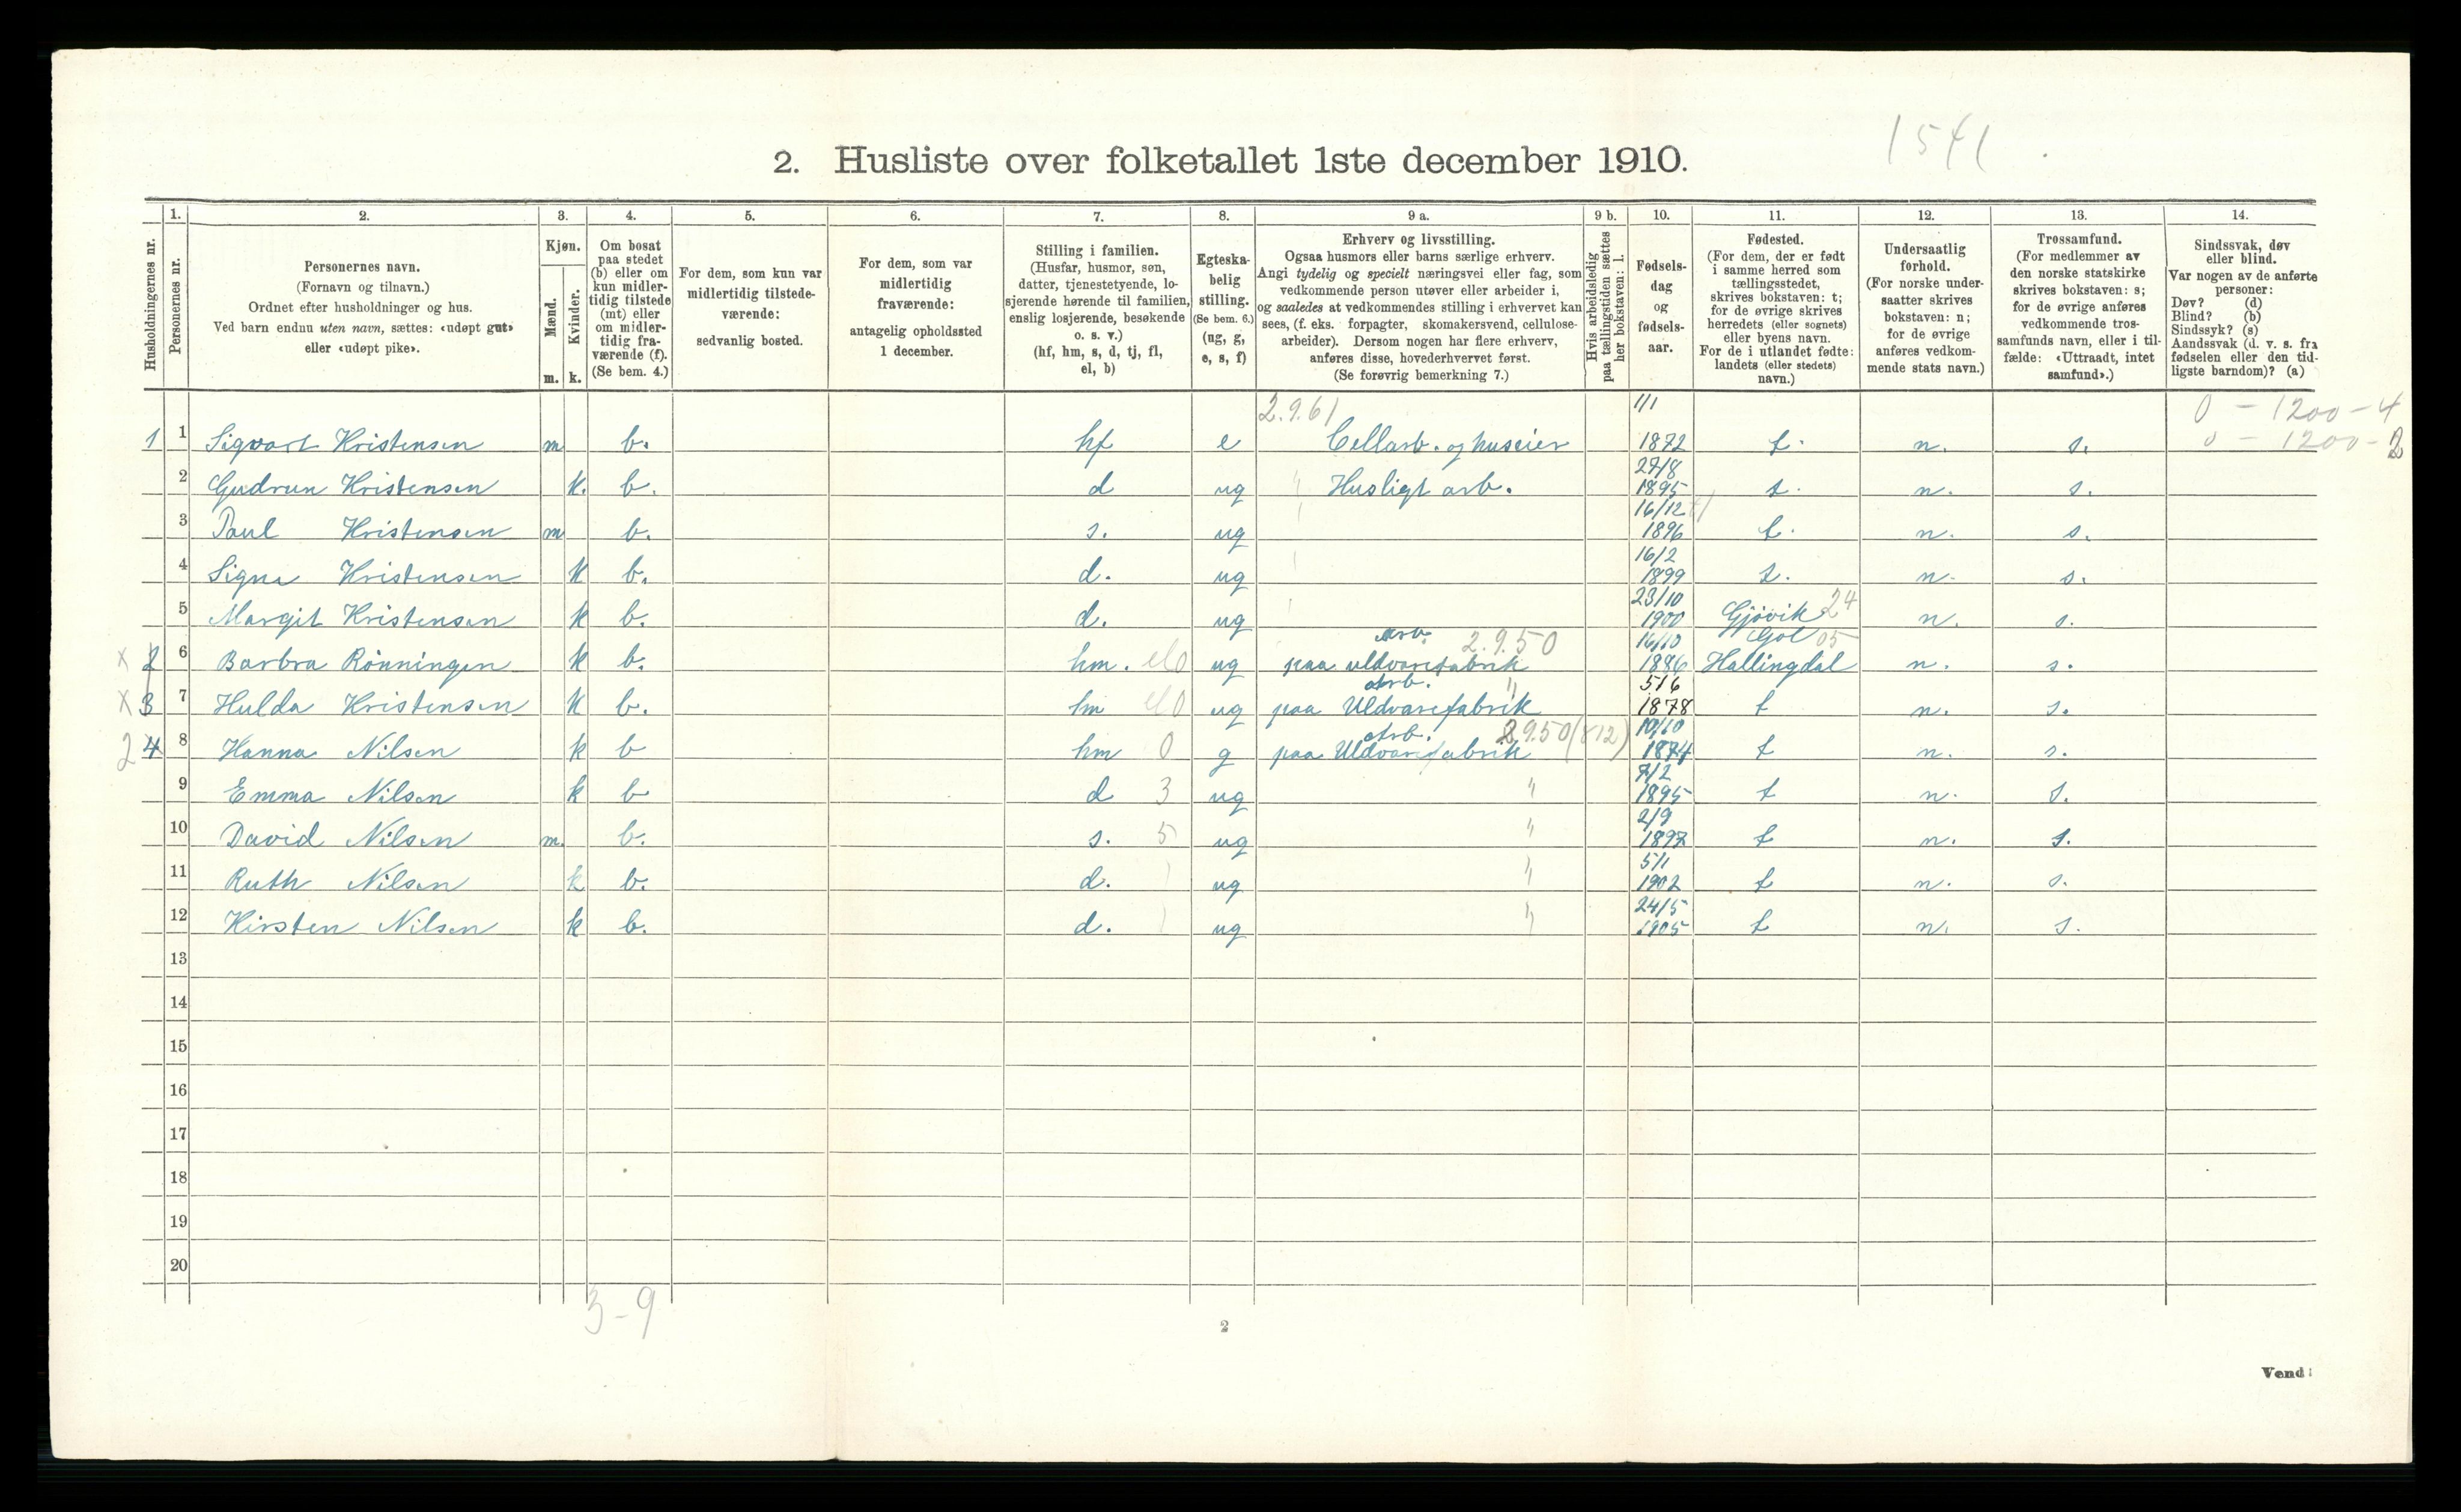 1541
2. Husliste over folketallet 1ste december 1910.
Husholdningernes nr.
1. Personernes nr.
2. Personernes navn.
(Fornavn og tilnavn.)
Ordnet efter husholdninger og hus.
Ved barn endnu uten navn, sættes: «udøpt gut»
eller «udøpt pike».
3. Kjøn.
Mænd. m.
Kvinder. k.
4. Om bosat
paa stedet
(b) eller om
kun midler-
tidig tilstede
(mt) eller
om midler-
tidig fra-
værende (f).
(Se bem. 4.)
5. For dem, som kun var
midlertidig tilstede-
værende:
sedvanlig bosted.
6. For dem, som var
midlertidig
fraværende:
antagelig opholdssted
1 december.
7. Stilling i familien.
(Husfar, husmor, søn,
datter, tjenestetyende, lo-
sjerende hørende til familien,
enslig losjerende, besøkende
o. s. v.)
(hf, hm, s, d, tj, fl,
el, b)
8. Egteska-
belig
stilling.
(Se bem. 6.)
(ug, g,
e, s, f)
9 a. Erhverv og livsstilling.
Ogsaa husmors eller barns særlige erhverv.
Angi tydelig og specielt næringsvei eller fag, som
vedkommende person utøver eller arbeider i,
og saaledes at vedkommendes stilling i erhvervet kan
sees, (f. eks. forpagter, skomakersvend, cellulose-
arbeider). Dersom nogen har flere erhverv,
anføres disse, hovederhvervet først.
(Se forøvrig bemerkning 7.)
9 b. Hvis arbeidsledig
paa tællingstiden sættes
her bokstaven: l.
10. Fødsels-
dag
og
fødsels-
aar.
11. Fødested.
(For dem, der er født
i samme herred som
tællingsstedet,
skrives bokstaven: t;
for de øvrige skrives
herredets (eller sognets)
eller byens navn.
For de i utlandet fødte:
landets (eller stedets)
navn.)
12. Undersaatlig
forhold.
(For norske under-
saatter skrives
bokstaven: n;
for de øvrige
anføres vedkom-
mende stats navn.)
13. Trossamfund.
(For medlemmer av
den norske statskirke
skrives bokstaven: s;
for de øvrige anføres
vedkommende tros-
samfunds navn, eller i til-
fælde: «Uttraadt, intet
samfund».)
14. Sindssvak, døv
eller blind.
Var nogen av de anførte
personer:
Døv? (d)
Blind? (b)
Sindssyk? (s)
Aandssvak (d. v. s. fra
fødselen eller den tid-
ligste barndom)? (a)
2.9.61 0 - 1200 - 4
1 1 Sigvart Kristensen m b. hf e Cellarb. og huseier 1/1 1872 t. n. s. 0 - 1200 - 2
2 Gudrun Kristensen k. b. d ug Husligt arb. 27/8 1895 t. n. s.
3 Paul Kristensen m b. s. ug 16/12 1896 t. n. s.
4 Signe Kristensen k b. d. ug 16/2 1899 t. n. s.
5 Margit Kristensen k b. d. ug 23/10 1900 Gjövik 24 n. s.
x 2 6 Barbra Rönningen k b. hm. el0 ug Arb. 2.9.50 paa uldvarefabrik 16/10 1886 Gol 05 Hallingdal n. s.
x 3 7 Hulda Kristensen k b. hm el0 ug Arb. " paa Uldvarefabrik 5/6 1878 t n. s.
2 4 8 Hanna Nilsen k b hm 0 g Arb. 2.9.50 (812) paa Uldvarefabrik 10/10 1874 t n. s.
9 Emma Nilsen k b d 3 ug " 7/2 1895 t n. s.
10 David Nilsen m. b. s. 5 ug " 2/9 1897 t n. s.
11 Ruth Nilsen k b. d. ug " 5/1 1902 t n. s.
12 Kirsten Nilsen k b. d. ug " 24/5 1905 t n. s.
13
14
15
16
17
18
19
20
3-9
2
Vend!